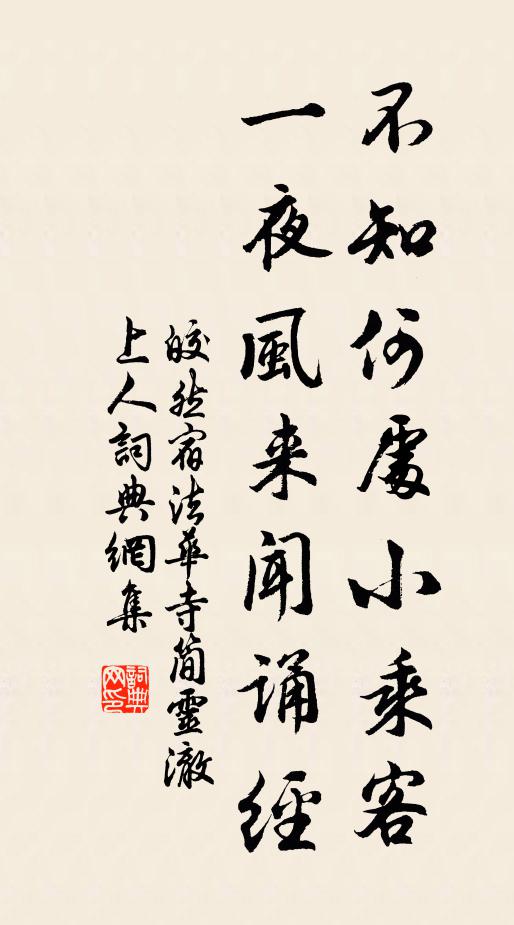 不知何處小乘客
一夜風来聞誦經
皎然宿法華寺簡靈澈
上人詞典網集
詞典
网印